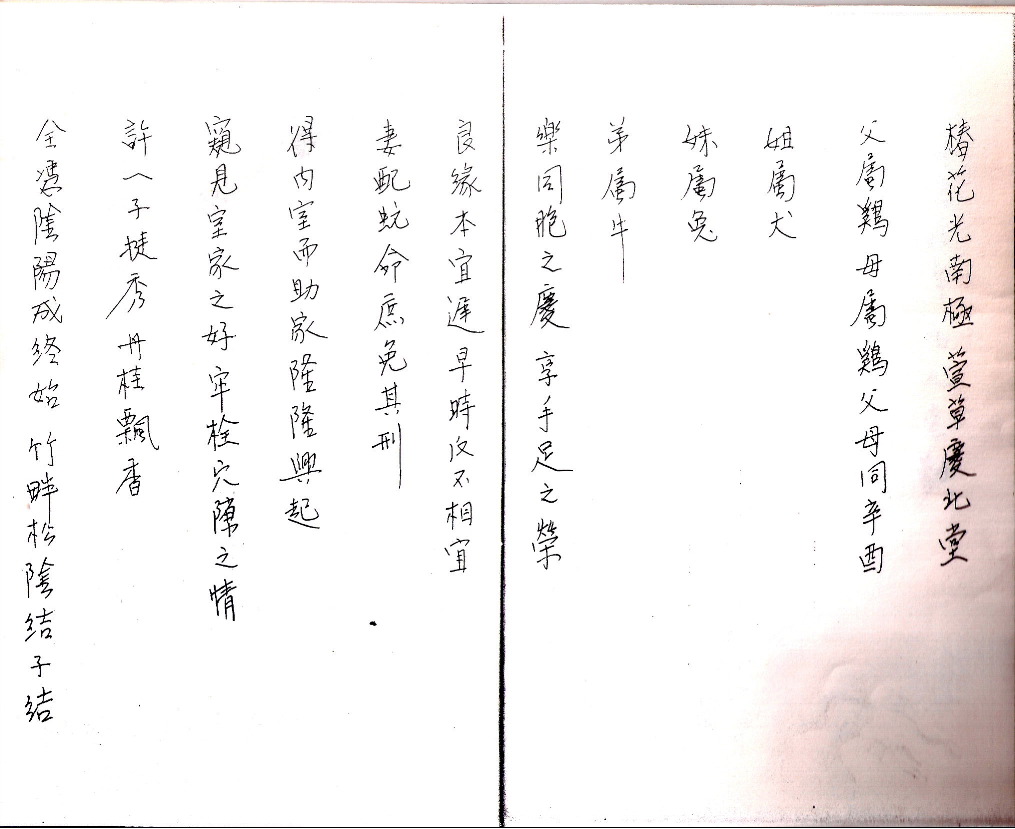 椿花光南極 萱草慶北堂
父属鷄母属鷄父母同辛酉
姐属犬
妹属兔
弟属牛
樂同胞之慶 享手足之榮
良緣本宜遲早時反不相宜
妻配蛇命庶免其刑
得内室而助家隆隆興起
窺見室家之好牢栓穴隙之情
許一子挺秀丹桂飄香
全憑陰陽成終始 竹畔松陰結子結